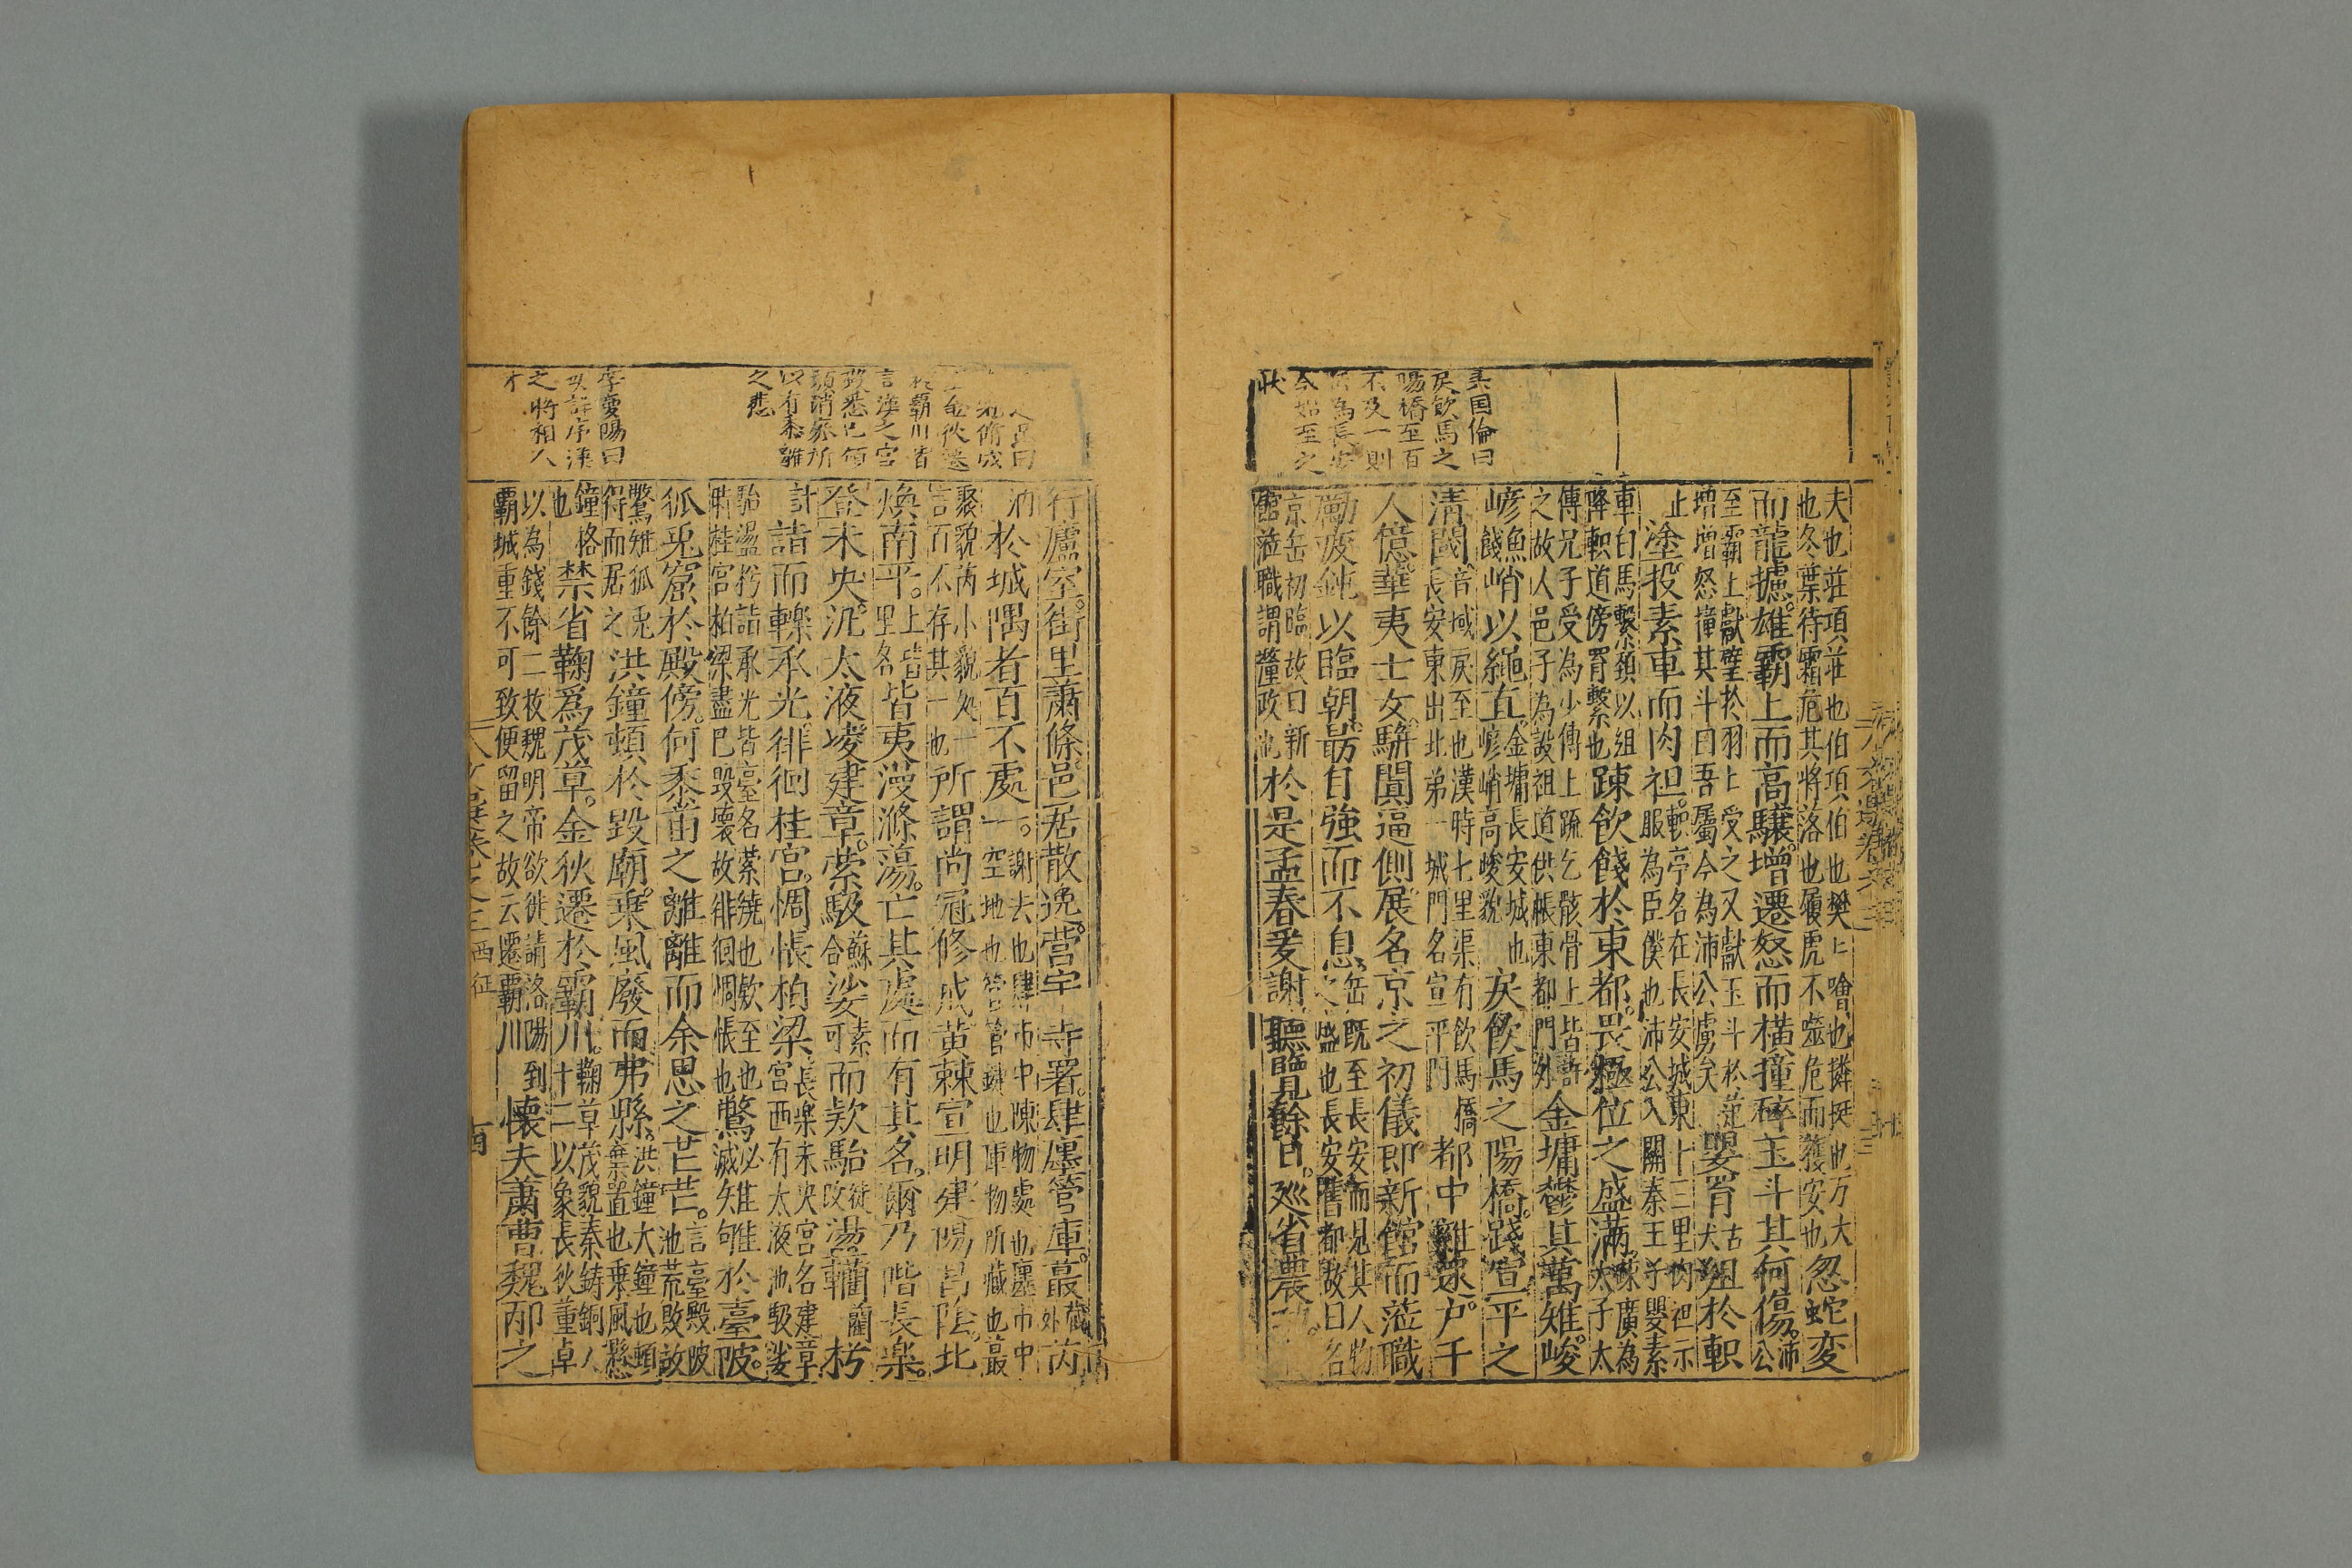 夫也莊項莊也伯項伯也樊樊噲也撛挺也万大
也冬葉待霜危其將洛也履虎不噬危而獲安也
忽蛇変
而龍攄。雄霸上而高驤。增遷怒而橫撞碎玉斗其何傷。沛公
至霸上獻璧於羽上受之又獻玉斗於范
增增怒撞其斗曰吾屬今為沛公虜矣
嬰罥組於軹
塗。投素車而肉袒。
軹亭名在長安城東十三里肉袒示
服為臣僕也沛公入關秦王子嬰素
車白馬繫頸以組
降軹道傍罥繫也
踈飲餞於東都。畏極位之盛滿。
踈廣為
太子太
傅兄子受為少傅上疏乞骸骨上皆許
之故人邑子為設祖道供帳東都門外
金墉鬱其萬雉。峻
嵃峭以繩直。
金墉長安城也
嵃峭高峻貌
戾飲馬之陽橋。踐宣平之
清閾。
戾至也漢時七里渠有飲馬橋
長安東出北弟一城門名宣平門
都中雜遝。户千
人億。華夷士女。駢闐逼側。展名京之初儀。即新館而蒞職
勵疲鈍以臨朝。勗自強而不息。
缶既至長安而見其人物
之盛也長安舊都故曰名
京缶初臨故曰新
館蒞職謂釐政也
於是孟春爰謝。聽覽餘日。廵省農功。
美国倫曰
戾飲馬之
陽橋至百
不及一則
今始至之
狀
行廬室。街里蕭條。邑居散逸。營宇寺署。肆廛管庫。蕞芮
於城隅者百不處一。
謝去也肆市中陳物處也廛市中
空地也管管鍵也庫物所藏也蕞
聚貌芮小貌処一
言百不存其一也
所謂尚冠修成黄棘宣明建陽昌陰。北
煥南平。
上皆
里名
皆夷漫滌蕩。亡其處而有其名。爾乃階長楽。
登未央。汎太液。凌建章。縈馺娑而欵駘盪。轥枍
詣而轢承光。徘徊桂宮。惆悵柏梁。
長楽未央宮名建章
宮西有太液池馺娑
駘盪枍詣承光皆臺名縈繞也欵至也
桂宮柏梁盡已毀壞故徘徊惆悵也
鷩雉雊於臺陂。
狐兎窟於殿傍。何黍苗之離離。而余思之芒芒。
言臺毀陂
池荒敗故
鷩雉狐兎
得而居之
洪鐘頓於毀廟。乗風廢而弗縣。
洪鐘大鐘也頓
棄置也乗風懸
鐘格
也
禁省鞠爲茂草。金狄遷於霸川。
鞠草茂貌秦鋳銅人
十二以象長狄董卓
以為錢餘二枚魏明帝欲徙請洛陽到
霸城重不可致便留之故云遷霸川
懐夫蕭曹魏邴之
從霸川皆
言漢之宮
以有黍離
之悲
李慶陽曰
叙詳序漢
之將相人
才
西征